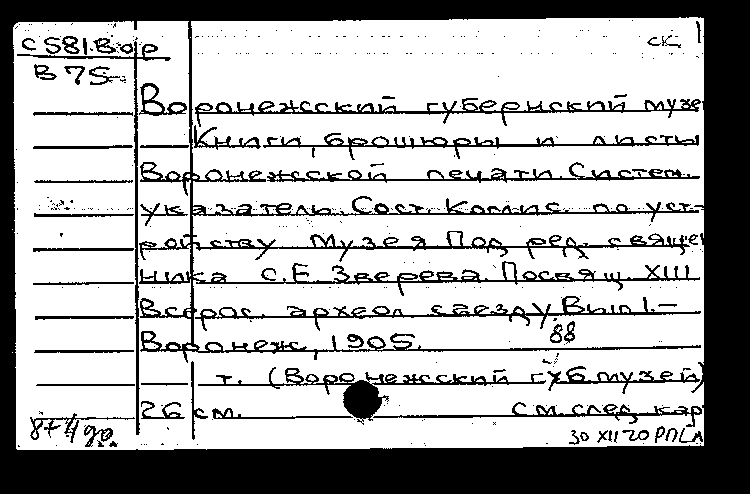 С581.Вор СК 1
В 75
Воронежсский губернский музе
Книги, брошюры и листы
Воронежсской печати. Систем.
указатель. Сост. Комис. по уст-
ройству Музея Под ред. священ
ника С.Е. Зверева. Посвящ. XIII
Всерос. археол. съезду. Вып 1.—
Воронеж, 1905. 88
т. (Воронежсский губ. музей)
26 см. См. след. кар
8+4 др. 30 XII 20